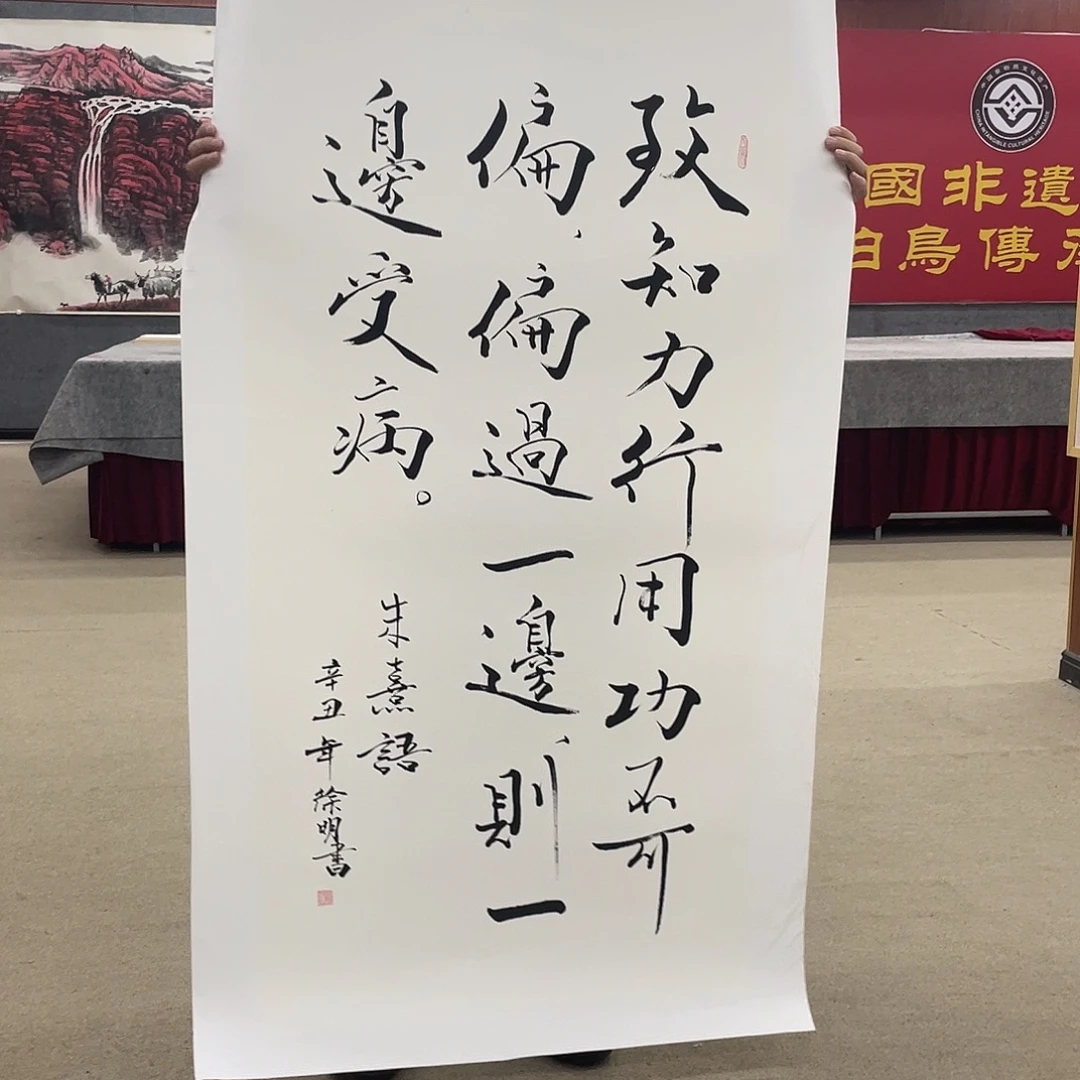 致知力行用功不可
偏、偏過一邊、則一
邊受病。
朱熹語
辛丑年徐明書
國非遺
鳥傳
CHINA INTANGIBLE CULTURAL HERITAGE